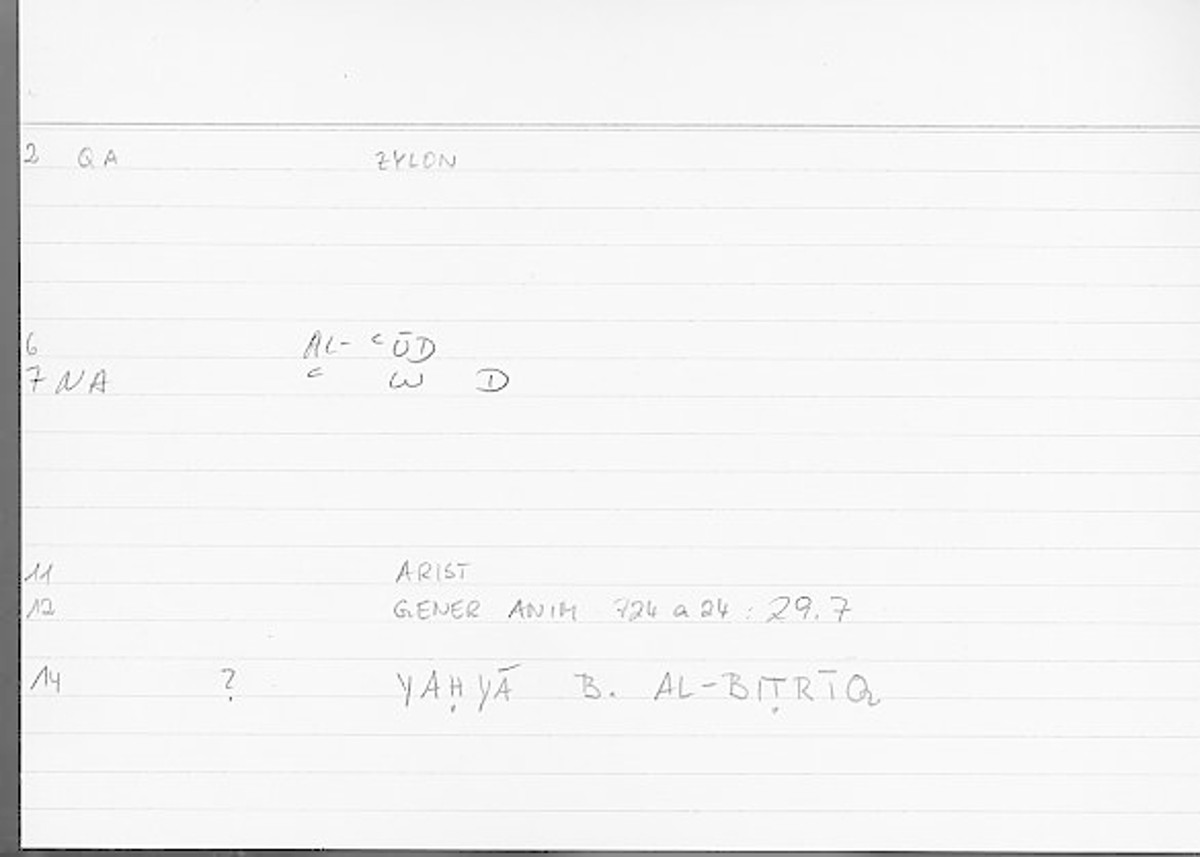 2 QA ZYLON
6 AL-ʿŪD
7 NA ʿ W D
11 ARIST
12 GENER ANIM 724 a 24 : 29.7
14 ? YAḤYĀ B. AL-BIṬRĪQ